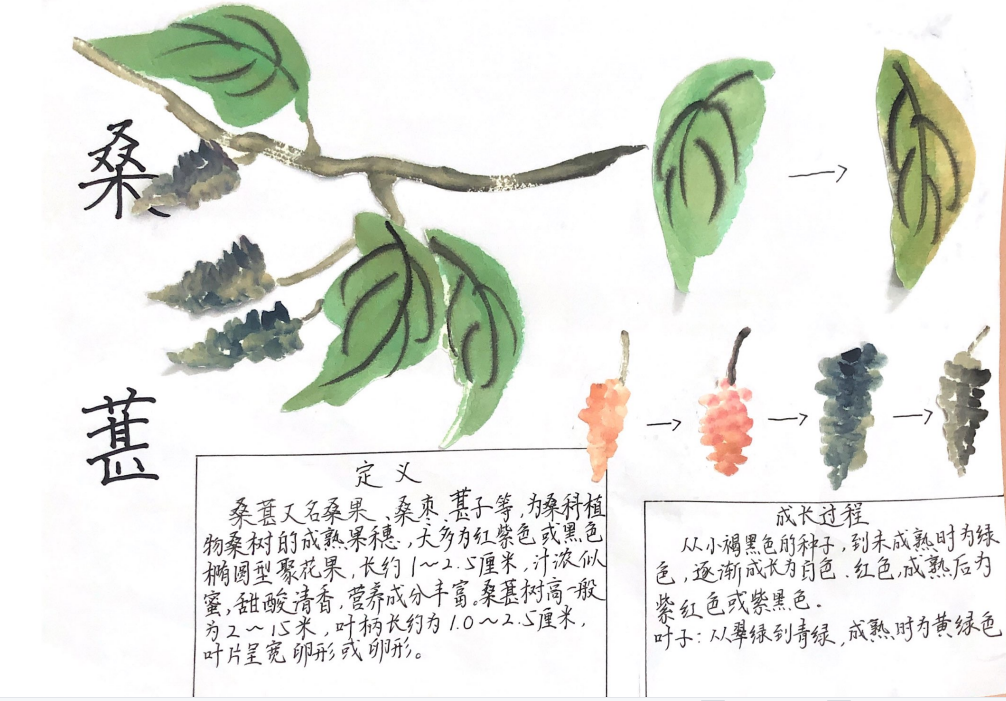 桑
葚
定义
桑葚又名桑果、桑枣、葚子等,为桑科植
物桑树的成熟果穗,大多为红紫色或黑色
椭圆型聚花果,长约1~2.5厘米,汁浓似
蜜,甜酸清香,营养成分丰富。桑葚树高一般
为2~15米,叶柄长约为1.0~2.5厘米,
叶片呈宽卵形或卵形。
成长过程
从小褐黑色的种子,到未成熟时为绿
色,逐渐成长为白色.红色,成熟后为
紫红色或紫黑色.
叶子:从翠绿到青绿,成熟时为黄绿色